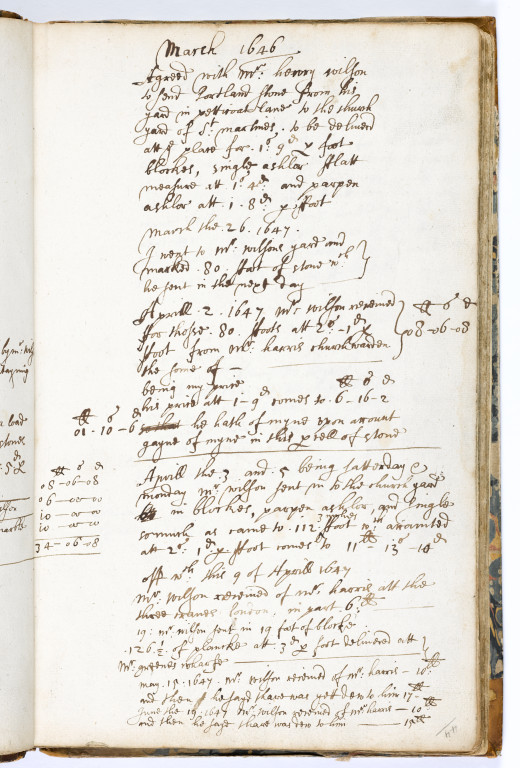 March 1646
Agreed with Mr. henry wilson
to send Portland stone from his
yard in petticoat lane to the church
yard of St. martines. to be deliverd
att place for 1s 9d p foot
blockes, single ashlor flatt
measure att 1s 4d and parpen
ashlor att 1. 8d p ffoot
march the. 26. 1647.
I went to Mr. wilsons yard and
marked. 80. ffoot of stone wch
he sent in the next day
Aprill. 2. 1647 Mr wilson received
ffor those. 80. ffoots att 2s. 1d p
ffoot from Mr. harris churchwarden
the some of
li s d
08-06-08
being my price
his price att 1-9d comes to. 6-16-2
li s d
01-10-6 he hath of myne upon account
gayne of myne in this p cell of stone
Aprill the 3 and. 5 being satterday &
monday Mr. wilson sent in to the church yard
in blockes, parpen ashlor, and single
so much as came to. 112. ffoot wch amounted
att 2s. 1d p ffoot comes to 11li - 13s - 10d
off wch this 9 of Aprill 1647
Mr. wilson received of Mr. harris att the
three cranes london. in part 6li
19: Mr. wilson sent in 19 foot of blocke
126 1/2 of plancke att 3d p foot delivered att
Mr. greenes wharffe
may. 15. 1647. Mr. wilson received of Mr. harris - 10li
and then he sayd there was yett dew to him 17-li
June the 19 1647 Mr. wilson received of Mr. harris - 10li
and then he saye there was dew to him - 15li
li s d
08-06-08
06-00-00
10-00-00
10-00-00
34-06-08
44